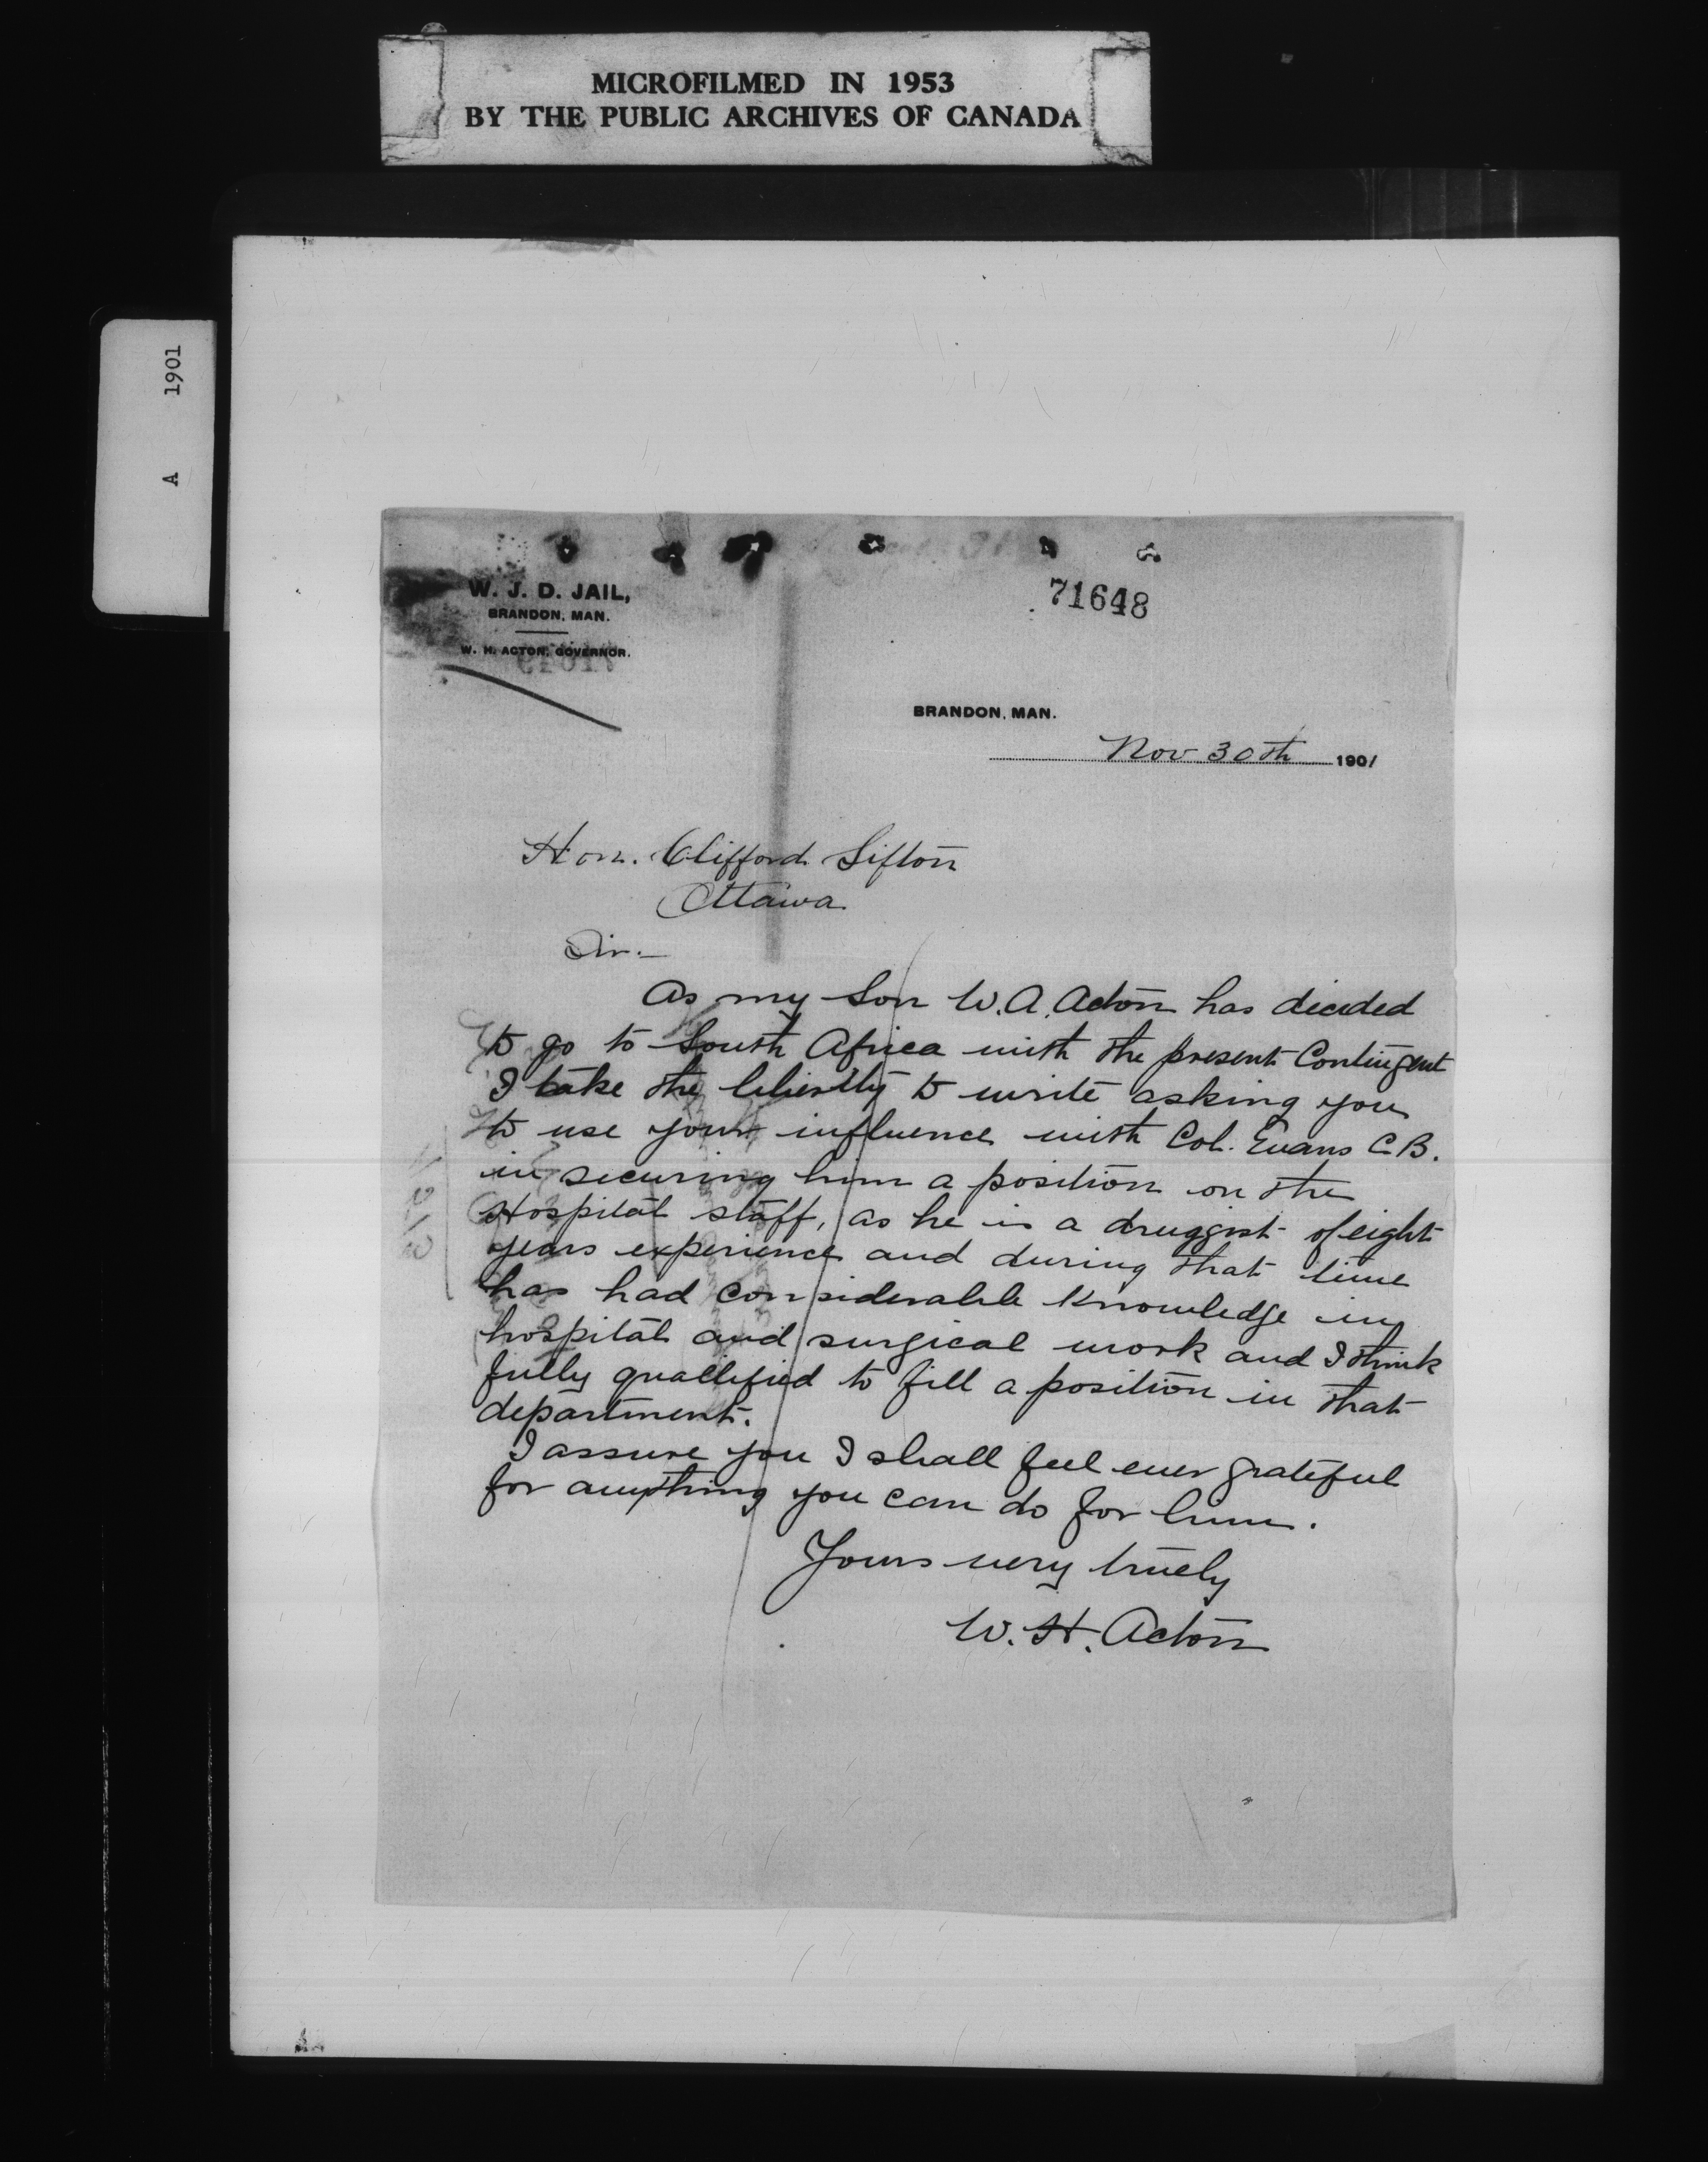 MICROFILMED IN 1953
BY THE PUBLIC ARCHIVES OF CANADA
A 1901
W. J. D. JAIL,
BRANDON, MAN.
W. H. ACTON, GOVERNOR.
71648
BRANDON, MAN.
Nov 30th 1901
Hon. Clifford Sifton
Ottawa
Sir.—
As my Son W. A. Acton has decided
to go to South Africa with the present Contingent
I take the liberty to write asking you
to use your influence with Col. Evans C.B.
in securing him a position on the
Hospital staff, as he is a druggist of eight
years experience and during that time
has had considerable knowledge in
hospital and surgical work and I think
fully quallified to fill a position in that
department.
I assure you I shall feel ever grateful
for anything you can do for him.
Yours very truely
W. H. Acton